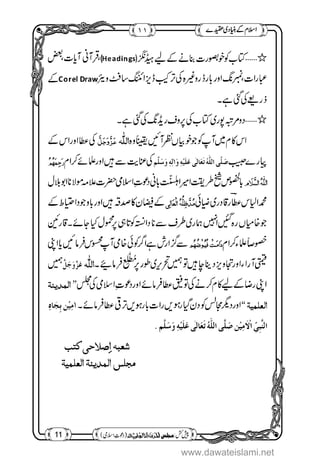 اسلام کے بنیادی عقیدے
۱۱
☆......کتاب کو خوبصورت بنانے کے لیے ہیڈنگز(Headings)قرآنی آیات، بعض
عبارات کی رنگین اور بارڈر کی ترکیب ڈیزائننگ سافٹ ویئر Corel Draw کے
ذریعے کی گئی ہے۔
☆......دومرتبہ پوری کتاب کی پروف ریڈنگ کی گئی ہے۔
اس کام میں آپ کو جو خوبیاں نظر آئیں وہ یقیناً اللہ عَزَّوَجَلَّ کی عطا اور اس کے
پیارے حبیب صَلَّی اللہُ تَعَالٰی عَلَیْہِ وَاٰلِہٖ وَسَلَّمَ کی عنایت سے ہیں اور علمائے کرام رَحِمَہُمُ
اللہُ السَّلَام بالخصوص شیخِ طریقت امیرِ اہلسنّت بانیِ دعوتِ اسلامی حضرت علامہ مولانا ابو بلال
محمد الیاس عطار قادری ضیائی مَدَّظِلُّہُ الْعَالِی کے فیضان کا صدقہ ہیں اور باوجود احتیاط کے
جو خامیاں رہ گئیں انہیں ہماری طرف سے نادانستہ کوتاہی پر محمول کیا جائے۔ قارئین
خصوصاً علمائے کرام دَامَتْ فُیُوْضُہُمْ سے گزارش ہے اگر کوئی خامی آپ محسوس فرمائیں یا اپنی
قیمتی آراء اور تجاویز دینا چاہیں تو ہمیں تحریری طور پر مطلع فرمائیے۔ اللہ عَزَّوَجَلَّ ہمیں
اپنی رضا کے لیے کام کرنے کی توفیق عطا فرمائے اور دعوتِ اسلامی کی مجلس ''المدینۃ
العلمیۃ'' اور دیگر مجالس کو دن گیارہویں رات بارہویں ترقی عطا فرمائے۔ اٰمِیْن بِجَاہِ
النَّبِیِّ الْاَمِیْن صَلَّی اللہُ تَعَالٰی عَلَیْہِ وَسَلَّم.
شعبہ اِصلاحی کتب
مجلس المدینۃ العلمیۃ
11
پیش کش: مجلس المدینۃ العلمیۃ (دعوتِ اسلامی)
www.dawateislami.net